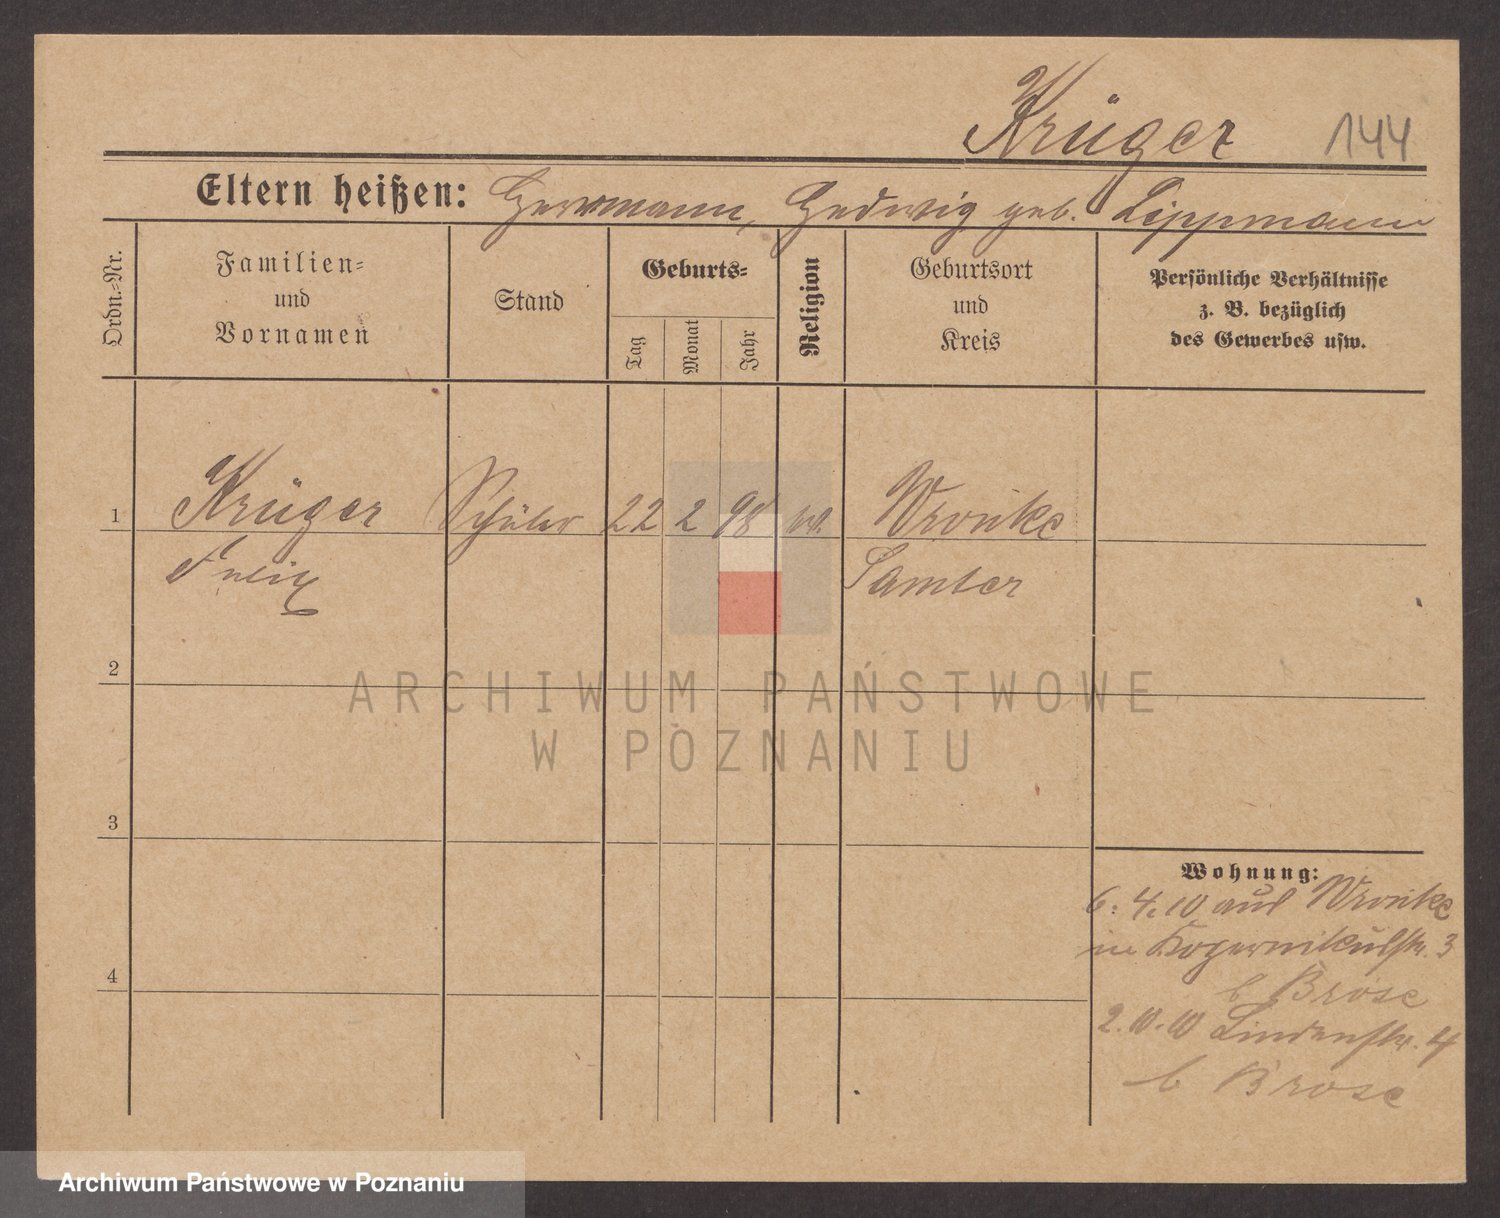 Krüger 144
Eltern heißen: Herrmann, Hedwig geb. Lippmann
Ordn.-Nr.
Familien-
und
Vornamen
Stand
Geburts-
Tag
Monat
Jahr
Religion
Geburtsort
und
Kreis
Persönliche Verhältnisse
z. B. bezüglich
des Gewerbes usw.
1 Krüger Schüler 22 2 98 Wronke
Samter
2
ARCHIWUM PAŃSTWOWE
W POZNANIU
3
4
Wohnung:
6. 4. 10 aus Wronke
in Kopernikusstr. 3
b Brose
2. 10. 10 Lindenstr. 4
b Brose
Archiwum Państwowe w Poznaniu